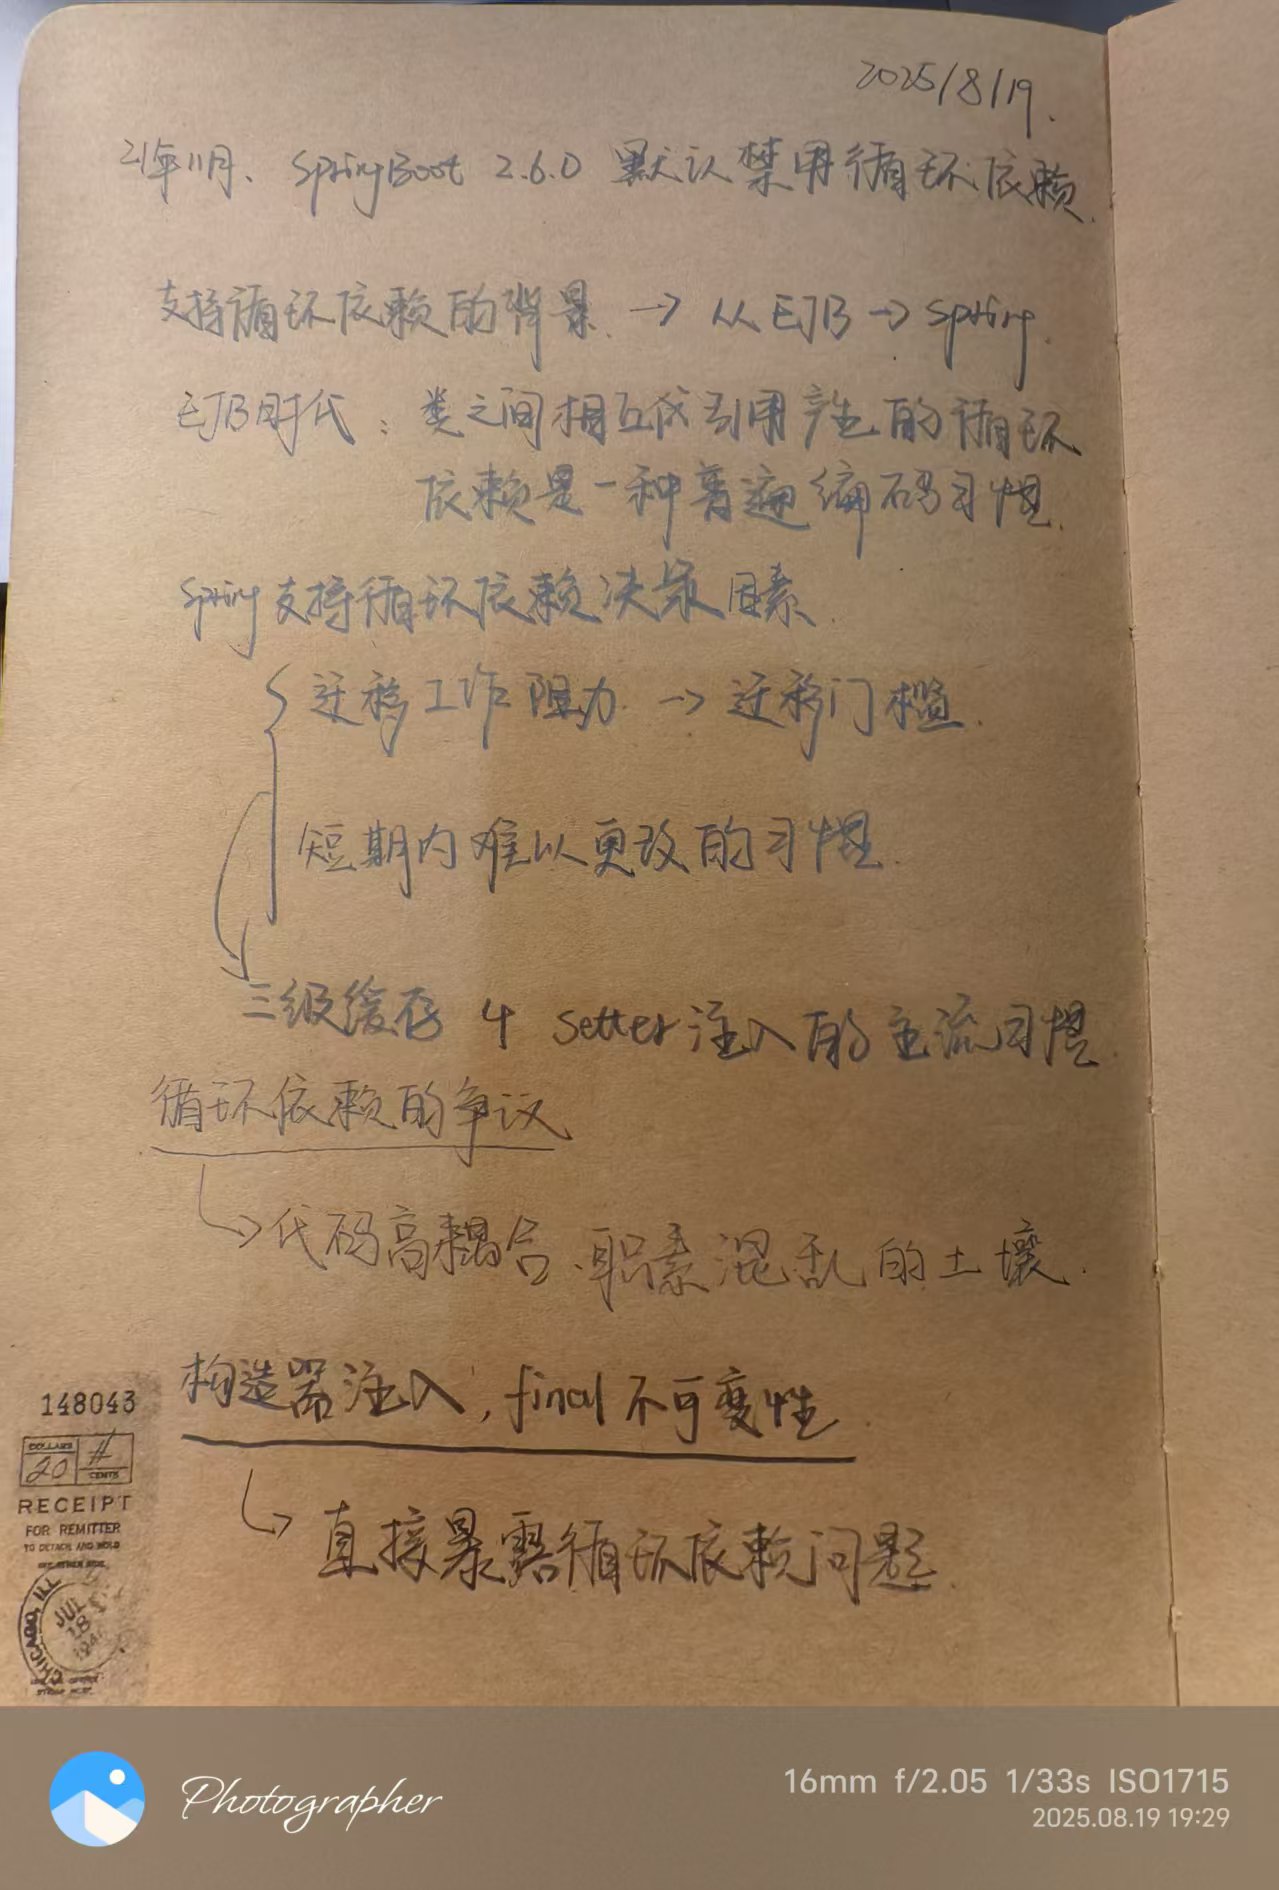 2025/8/19.
21年11月、SpringBoot 2.6.0 默认禁用循环依赖.
支持循环依赖的背景. → 从EJB → Spring.
EJB时代: 类之间相互依引用产生的循环
依赖是一种普遍编码习惯.
Spring支持循环依赖决策因素.
迁移工作阻力. → 迁移门槛.
短期内难以更改的习惯.
三级缓存 4 setter注入的主流习惯.
循环依赖的争议
↳代码高耦合.职素混乱的土壤.
构造器注入, final 不可变性.
↳直接暴露循环依赖问题.
148043
DOLLARS
20
CENTS
RECEIPT
FOR REMITTER
TO DETACH AND HOLD
SEE OTHER SIDE
CHICAGO, ILL
JUL
18
Photographer
16mm f/2.05 1/33s ISO1715
2025.08.19 19:29